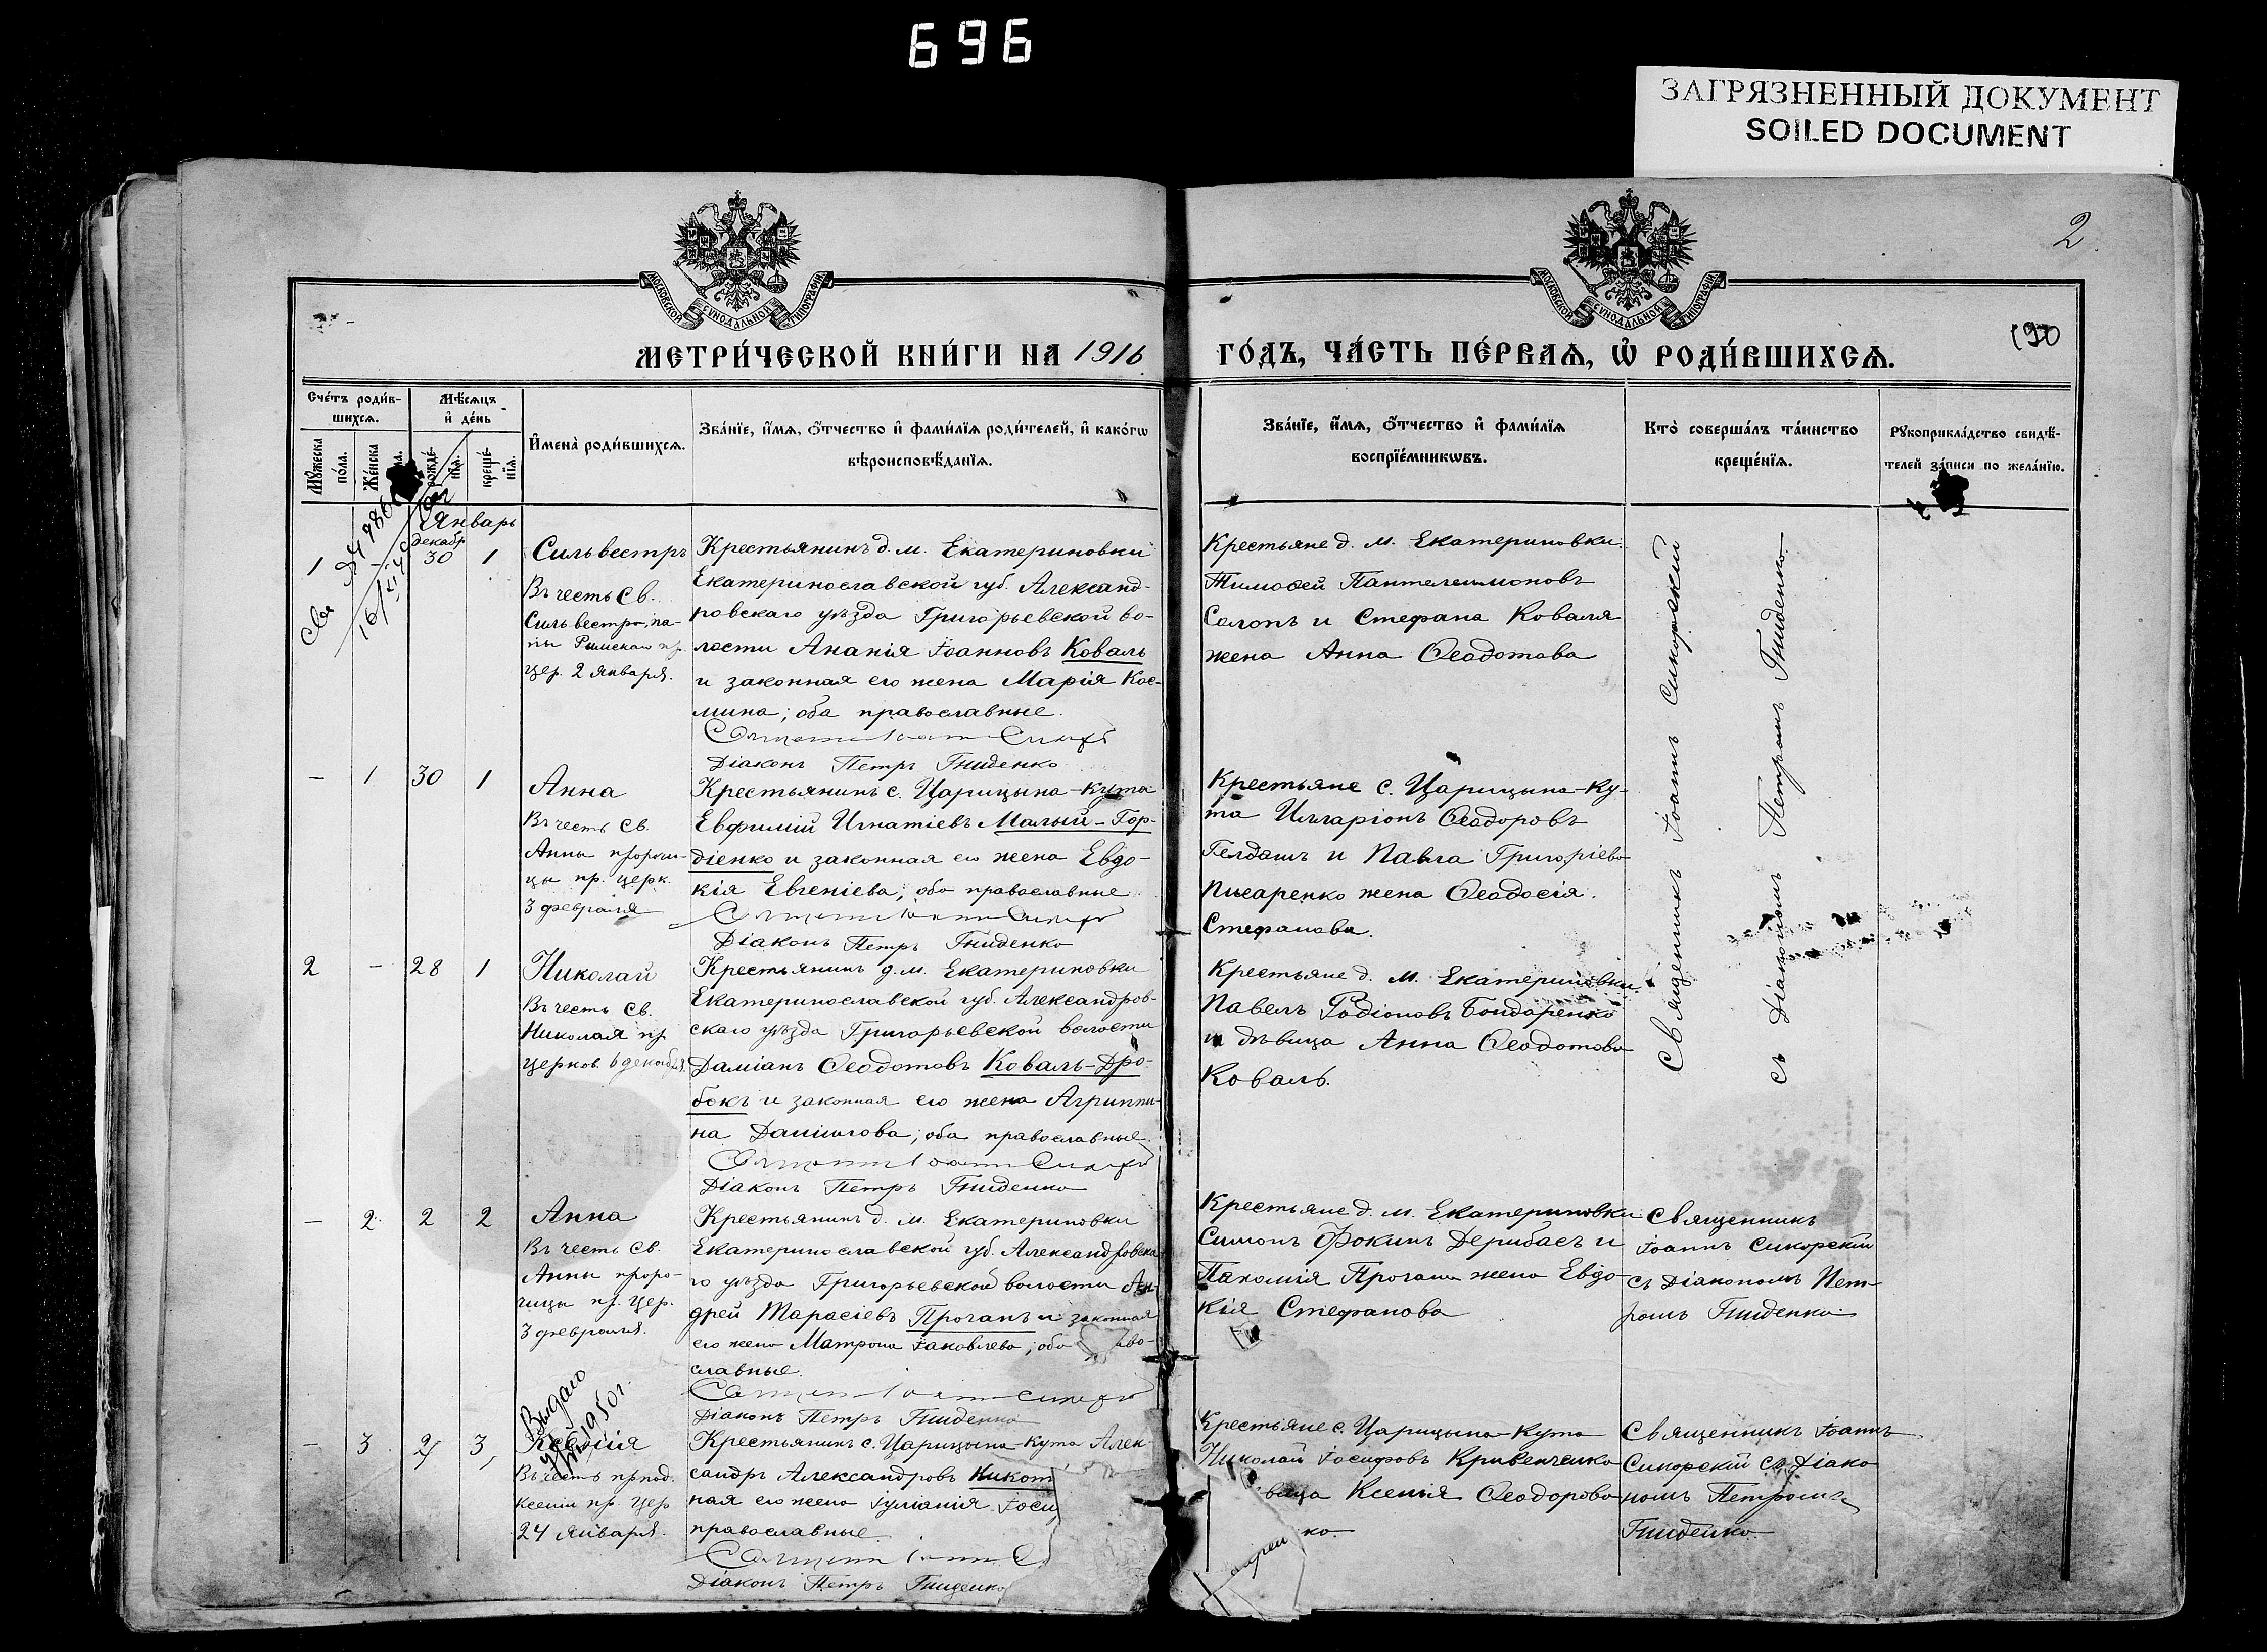 696
ЗАГРЯЗНЕННЫЙ ДОКУМЕНТ
SOILED DOCUMENT
2
МОСКОВСКОЙ СѴНОДАЛЬНОЙ ТИПОГРАФІИ
МОСКОВСКОЙ СѴНОДАЛЬНОЙ ТИПОГРАФІИ
МЕТРИ́ЧЕСКОЙ КНИ́ГИ НА 1916
ГО́ДЪ, ЧА́СТЬ ПЕ́РВАѦ, Ѡ҆ РОДИ́ВШИХСѦ.
190
Сче́тъ роди́в-
шихсѧ.
Мѣ́сѧцъ
и҆ де́нь
Мꙋ́жеска
по́ла.
Же́нска
рожде́-
нїѧ.
креще́-
нїѧ.
И҆мена̀ роди́вшихсѧ.
Зва́нїе, и҆́мѧ, ѻ҆́тчество и҆ фами́лїѧ роди́телей, и҆ како́гѡ
вѣроисповѣ́данїѧ.
Зва́нїе, и҆́мѧ, ѻ҆́тчество и҆ фами́лїѧ
воспрїе́мникѡвъ.
Кто̀ соверша́лъ та́инство
креще́нїѧ.
Рꙋкоприкла́дство свидѣ́-
телей за́писи по жела́нїю.
Январь
декабр
1 - 30 1
Сильвестръ
Въ честь Св.
Сильвестра, па-
пы Римскаго пр.
цер. 2 Января.
Крестьянинъ д. м. Екатериновки
Екатеринославской губ. Александ-
ровскаго уѣзда Григорьевской во-
лости Ананія Іоанновъ Коваль
и законная его жена Марія Кос-
мина; оба православные.
Діаконъ Петръ Гниденко
Крестьяне д. м. Екатериновки
Тимоѳей Пантелеимоновъ
Солопъ и Стефана Коваля
жена Анна Ѳеодотова
Священникъ Іоаннъ Сикорскій
съ Діакономъ Петромъ Гниденко
- 1 30 1
Анна
Въ честь Св.
Анны пророчи-
цы пр. церк.
3 февраля
Крестьянинъ с. Царицына-Кута
Евфимій Игнатіевъ Малый-Гор-
діенко и законная его жена Евдо-
кія Евгеніева; оба православные
Діаконъ Петръ Гниденко
Крестьяне с. Царицына-Ку-
та Илларіонъ Ѳеодоровъ
Гелдашъ и Павла Григоріева
Писаренко жена Ѳеодосія
Стефанова.
2 - 28 1
Николай
Въ честь Св.
Николая пр.
церков. 6 декабря.
Крестьянинъ д. м. Екатериновки
Екатеринославской губ. Александров-
скаго уѣзда Григорьевской волости
Даміанъ Ѳеодотовъ Коваль-Дро-
бокъ и законная его жена Агриппи-
на Даніилова; оба православные.
Діаконъ Петръ Гниденко
Крестьяне д. м. Екатериновки
Павелъ Родіоновъ Бондаренко
и дѣвица Анна Ѳеодотова
Коваль.
- 2 2 2
Анна
Въ честь Св.
Анны проро-
чицы пр. цер.
3 февраля.
Крестьянинъ д. м. Екатериновки
Екатеринославской губ. Александровска-
го уѣзда Григорьевской волости Ан-
дрей Тарасіевъ Проганъ и законная
его жена Матрона Іаковлева; оба
славные.
Діаконъ Петръ Гниденко
Крестьяне д. м. Екатериновки
Симонъ Фокинъ Дерибасъ и
Пахомія Прогана жена Евдо-
кія Стефанова
Священникъ
Іоаннъ Сикорскій
съ Діакономъ Пет-
ромъ Гниденко
Выдано
1950 г.
- 3 2 3
Ксенія
Въ честь прпод.
Ксеніи пр. цер
24 Января.
Крестьянинъ с. Царицына-Кута Алек-
сандръ Александровъ Кикот
ная его жена Іуліанія Іоси
православные
Діаконъ Петръ Гниденко
Крестьяне с. Царицына-Кута
Николай Іосифовъ Кривенченко
вица Ксенія Ѳеодорова
ко.
Священникъ Іоаннъ
Сикорскій съ Діако
номъ Петромъ
Гниденко